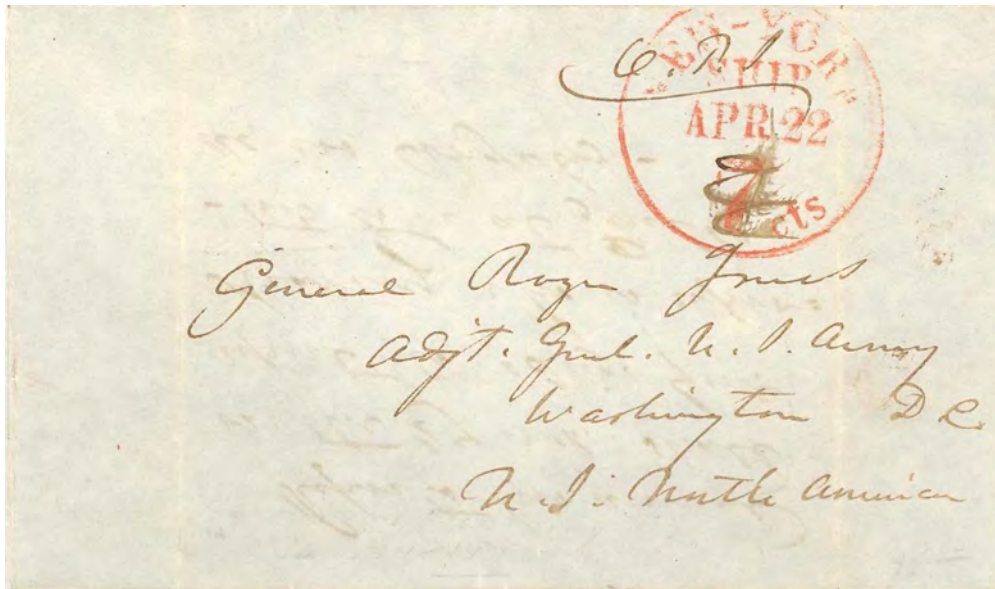 O. B. S
NEW-YORK
SHIP
APR 22
7 cts
General Roger Jones
Adjt. Genl. U. S. Army
Washington D C.
U. S. North America